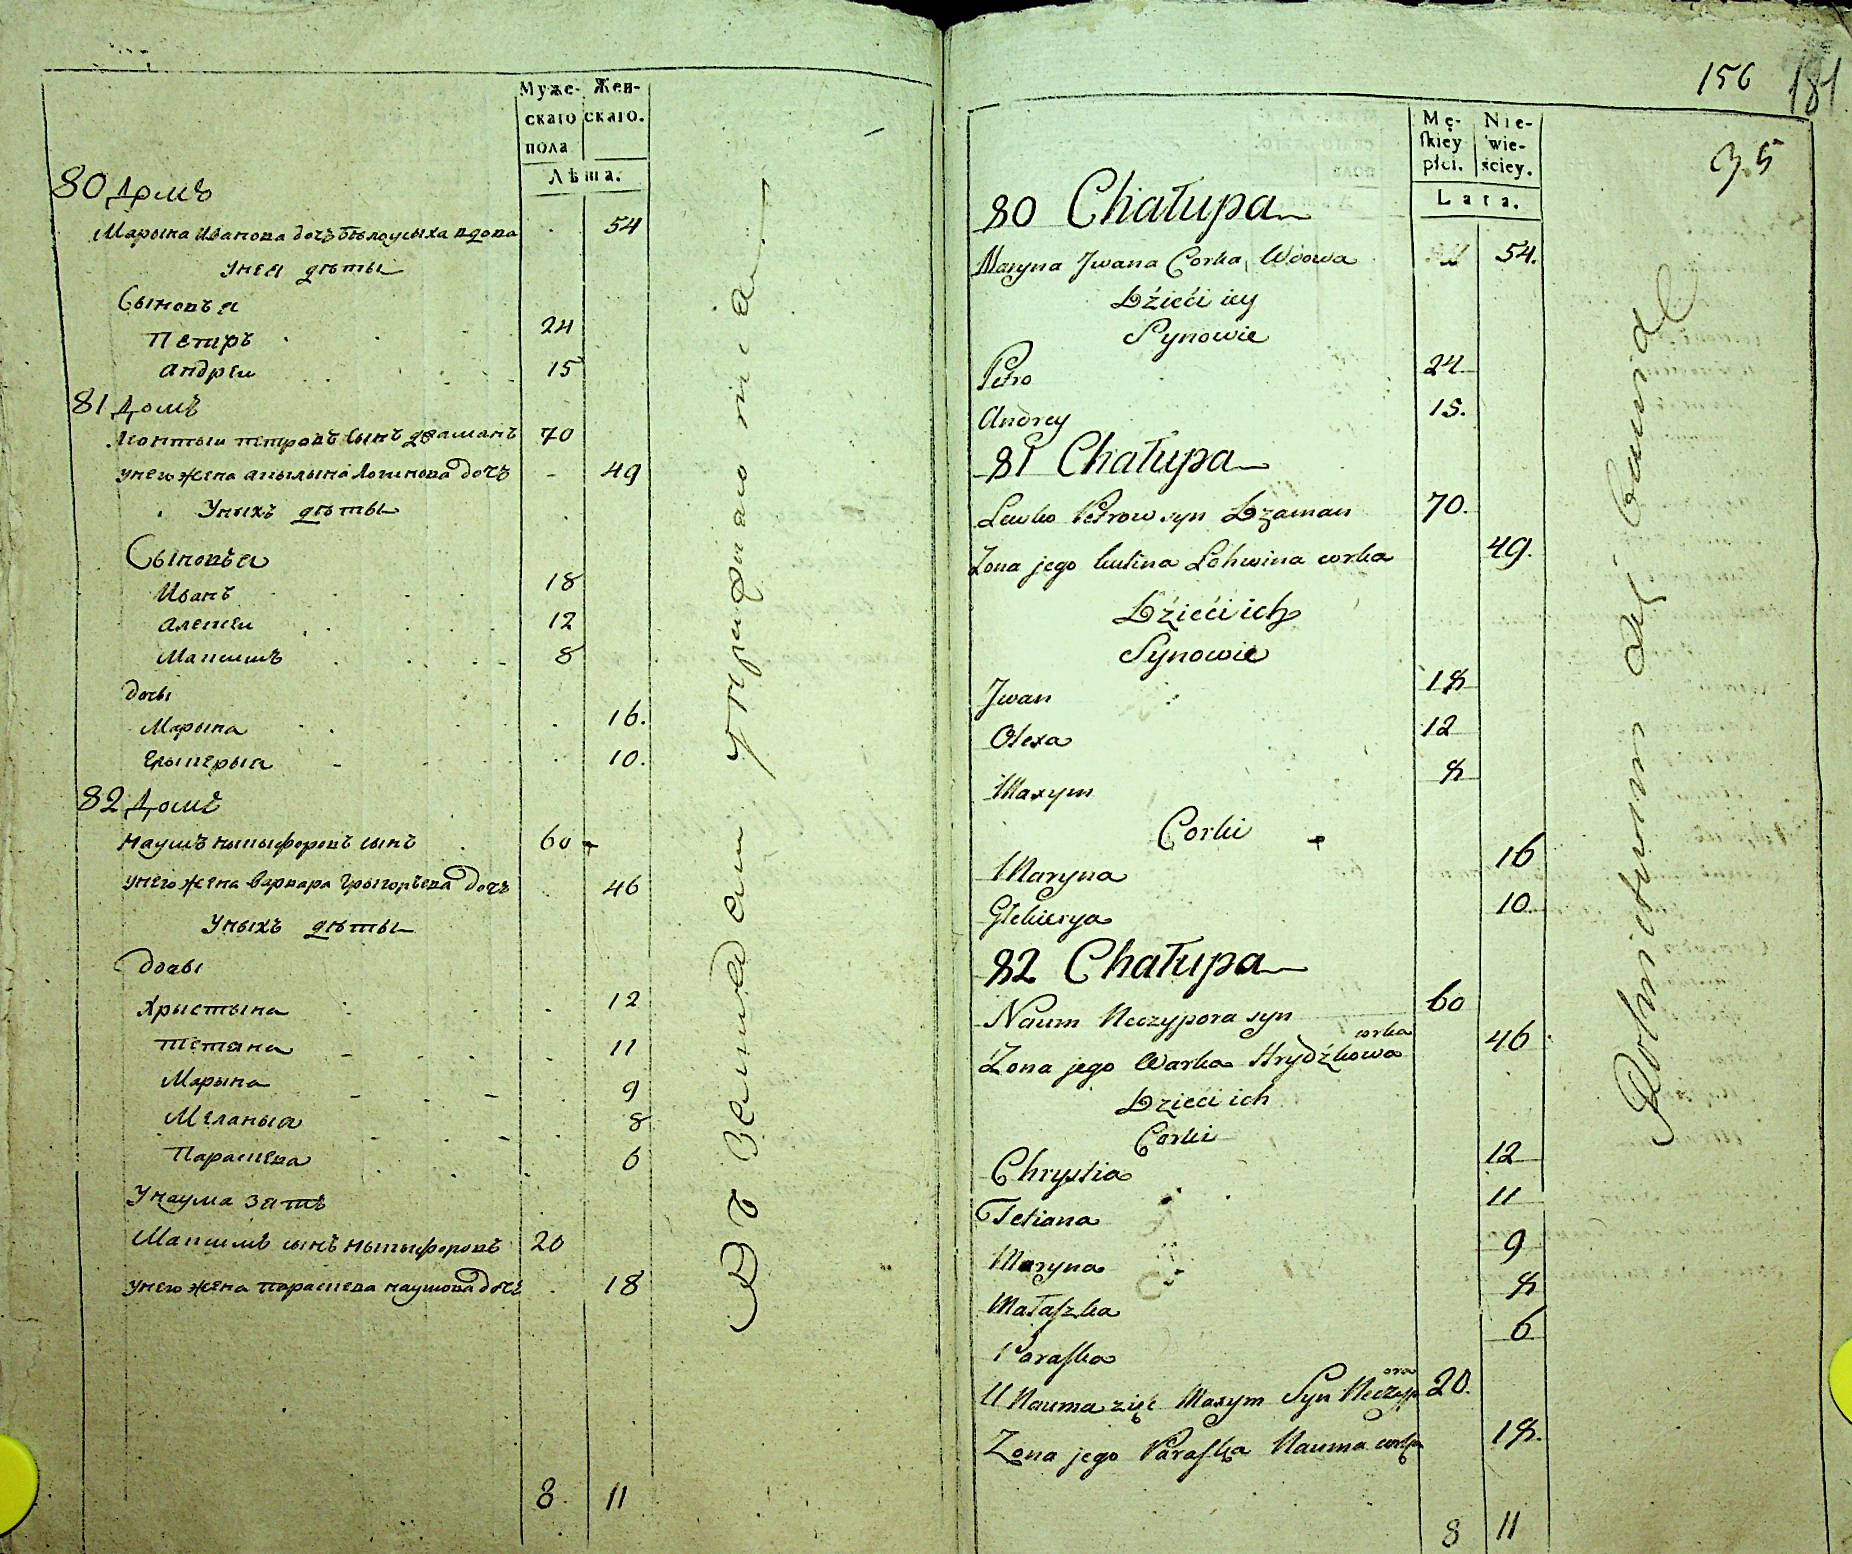 Муже- Жен-
скаго скаго.
пола
Лѣта.
80 Домъ
Марына Иванова дочъ Бѣлоусыха вдова 54
Унея дѣты
Сыновъя
Петръ 24
андреи 15
81 Домъ
Леонтыи петровъ сынъ дзаманъ 70
унего жена акылына Логинова дочъ 49
Уныхъ дѣты
Сыновъя
Иванъ 18
алеѯеи 12
Маѯимъ 8
дочы
Марына 16.
10.
82 Домъ
наумъ ныкыфоровъ сынъ 60
унего жена варвара Грыгоръева дочъ 46
Уныхъ дѣты
дочы
Христына 12
Тетяна 11
Марына 9
Меланыя 8
Парасцева 6
Унаума зять
Маѯимъ сынъ ныкыфоровъ 20
унего жена парасцева наумова дочъ 18
8. 11
156 181
35
Mę- Nie-
skiey wie-
płci. ściey.
Lata.
80 Chałupa
Maryna Jwana Corka, Wdowa 54.
Dźieći iey
Synowie
Petro 24
Andrey 15.
81 Chałupa
Lewko Petrow syn Dzaman 70.
Żona jego Lohwina corka 49.
Dźieći ich
Synowie
Jwan 18
Olexa 12
Maxym 8
Corki
Maryna 16
Glekierya 10
82 Chałupa
Naum Neczypora syn 60
Żona jego Warka Hrydźkowa corka 46
Dzieci ich
Corki
Chrystia 12
Tetiana 11
Maryna 9
Małaszka 8
Paraska 6
U Nauma zięć Maxym Syn Neczypora 20.
Zona jego Paraska Nauma corka 18.
8 11